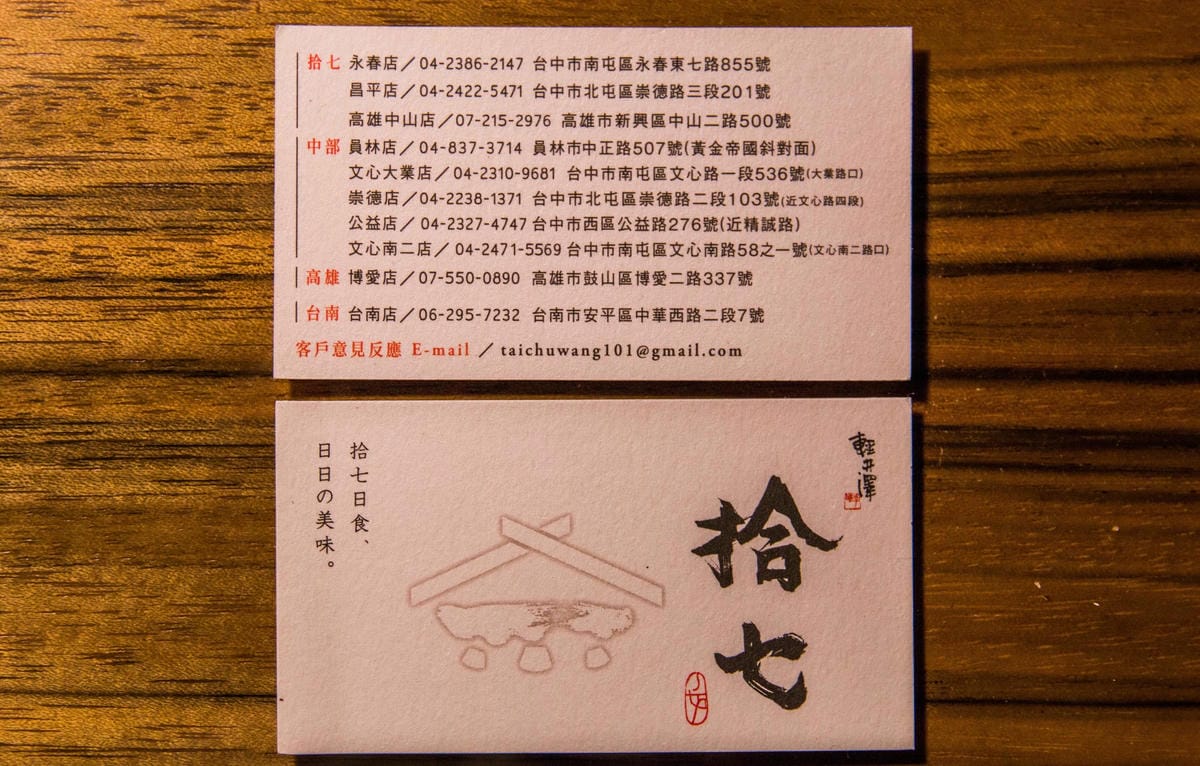 拾七 永春店／04-2386-2147 台中市南屯區永春東七路855號
昌平店／04-2422-5471 台中市北屯區崇德路三段201號
高雄中山店／07-215-2976 高雄市新興區中山二路500號
中部 員林店／04-837-3714 員林市中正路507號(黃金帝國斜對面)
文心大業店／04-2310-9681 台中市南屯區文心路一段536號(大業路口)
崇德店／04-2238-1371 台中市北屯區崇德路二段103號(近文心路四段)
公益店／04-2327-4747 台中市西區公益路276號(近精誠路)
文心南二店／04-2471-5569 台中市南屯區文心南路58之一號(文心南二路口)
高雄 博愛店／07-550-0890 高雄市鼓山區博愛二路337號
台南 台南店／06-295-7232 台南市安平區中華西路二段7號
客戶意見反應 E-mail／taichuwang101@gmail.com
輕井澤
拾七
拾七日食、
日日の美味。